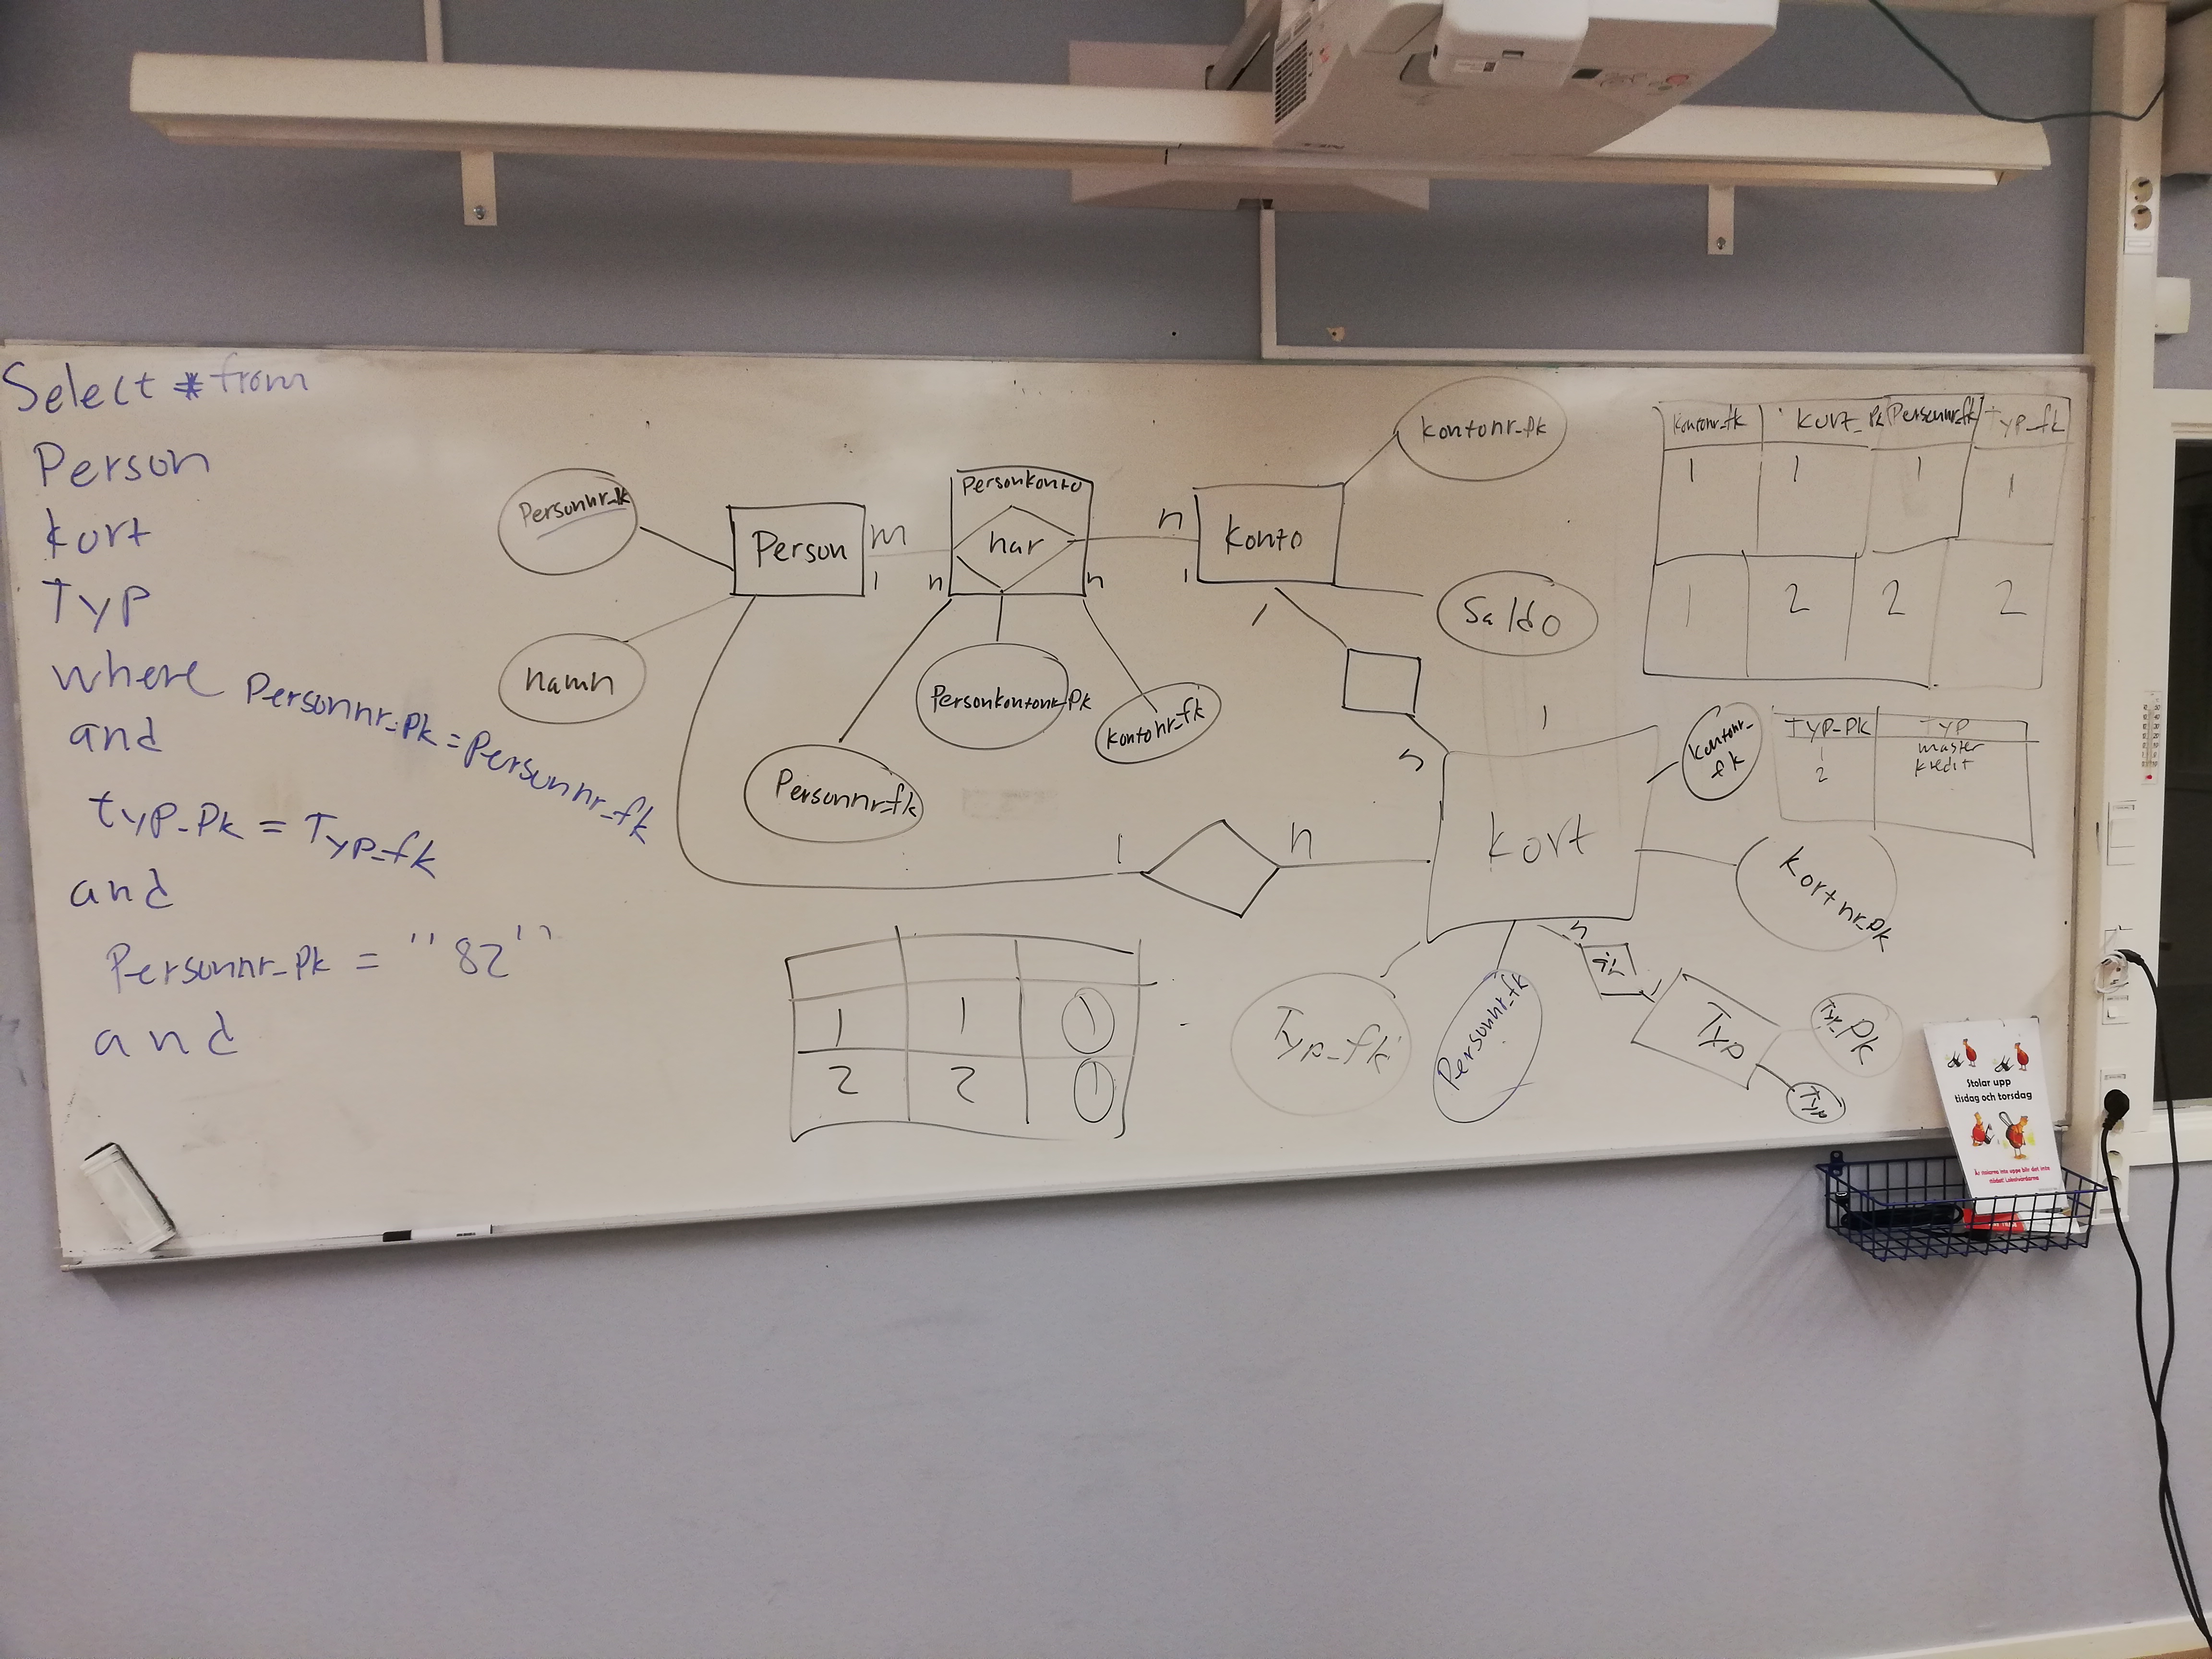 Select * from
Person
kort
Typ
where Personnr_pk = Personnr_fk
and
typ_pk = Typ_fk
and
Personnr_pk = "82"
and
Personnr_pk
namn
Person
m
1
Personkonto
har
n
n
n
1
Konto
kontonr_pk
Saldo
Personnr_fk
Personkontonr_pk
kontonr_fk
1
n
1
n
1
kort
kontonr_fk
kortnr_pk
Typ_fk
Personnr_fk
n
är
1
Typ
Typ_pk
Typ
Kontonr_fk kort_pk Personnr_fk Typ_fk
1 1 1 1
1 2 2 2
Typ_pk Typ
1 master
2 kredit
1 1 1
2 2 1
Stolar upp
tisdag och torsdag
NEC